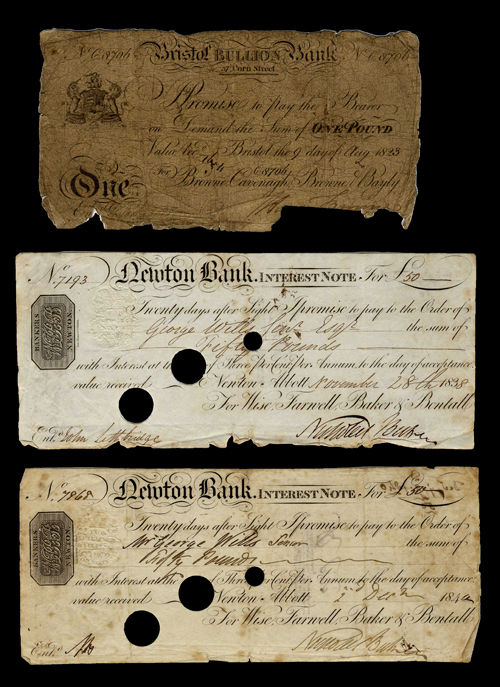 No C8706 Bristol BULLION Bank No C8706
27 Corn Street
I Promise to pay the Bearer
on Demand the Sum of ONE POUND
Value recd Bristol the 9 day of Aug 1823
For C8706
One Browne Cavenagh Browne & Bayly
No 7193 Newton Bank. INTEREST NOTE. For £50
BANKERS NEWTON
Twenty days after Sight I promise to pay to the Order of
George Wills Senr Esqr the sum of
Fifty Pounds
with Interest at the of Three per Cent per Annum to the day of acceptance
value received Newton Abbott November 28th 1838
For Wise, Farwell, Baker & Bentall
Entd John Lethbridge
No 7868 Newton Bank. INTEREST NOTE. For £50
BANKERS NEWTON
Twenty days after Sight I promise to pay to the Order of
Mr George Wills Senior the sum of
Fifty Pounds
with Interest at the of Three per Cent per Annum to the day of acceptance
value received Newton Abbott Decr 184
For Wise, Farwell, Baker & Bentall
Entd